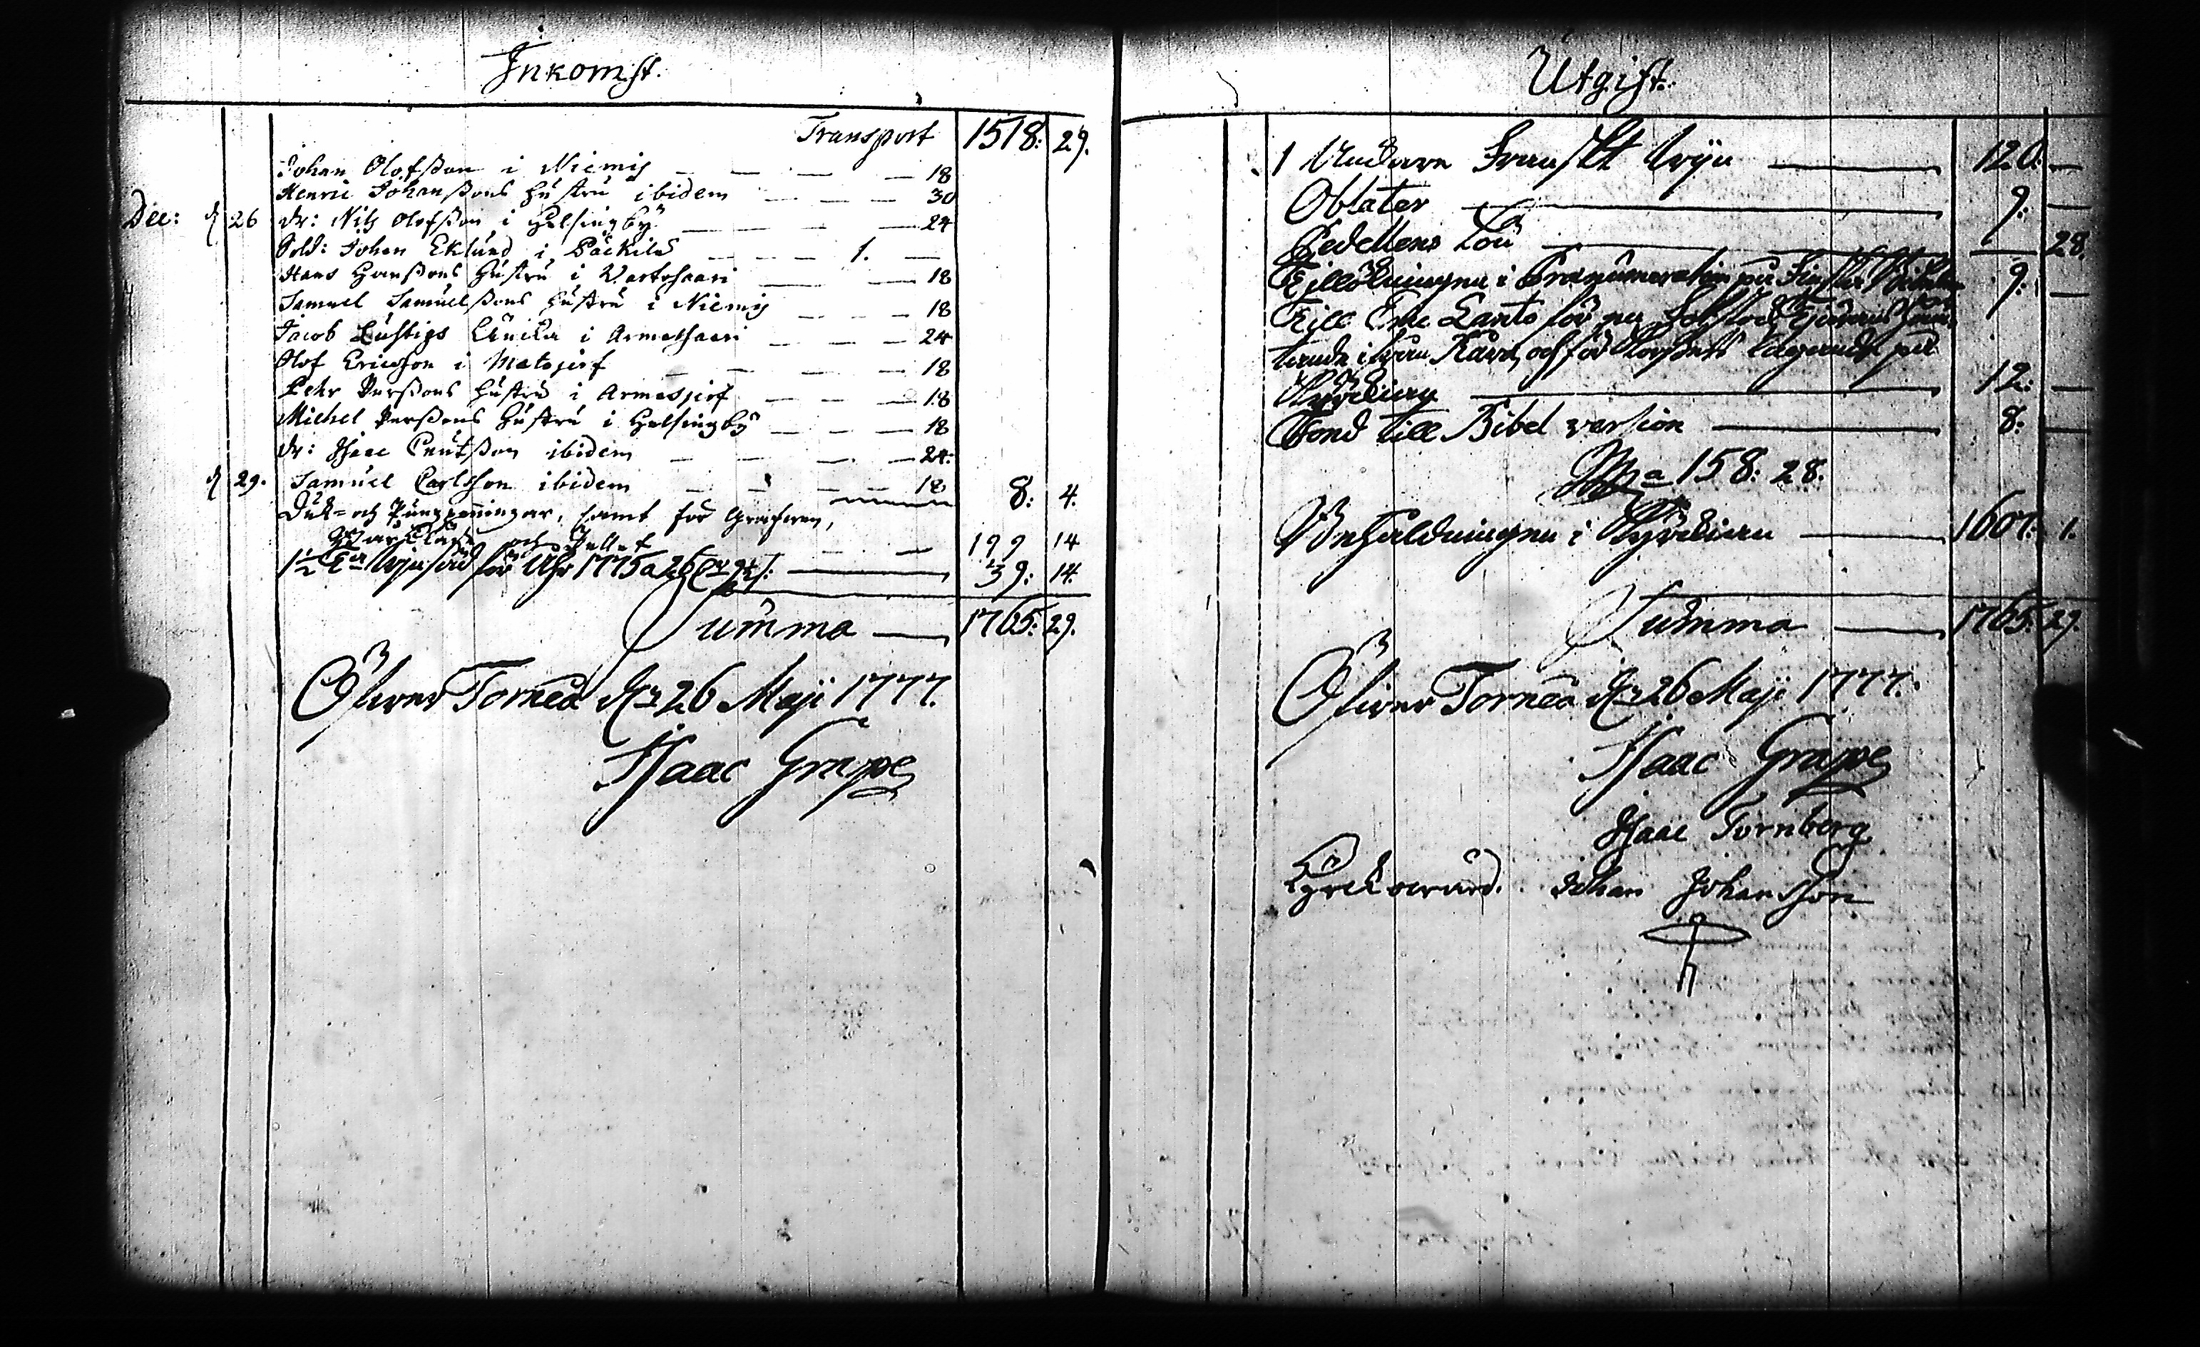 Inkomst.
Transport 1518: 29.
Johan Olofsson i Niemis — — — 18
Henric Johanssons hustru ibidem — — — 30
Dec: d 26 dr: Nils Olofsson i Helsingby — — — 24
Sold: Johan Eklund i Päckilä — — — 1. —
Hans Hanssons hustru i Wartosaari — — 18
Samuel Samuelssons hustru i Niemis — — 18
Jacob Lustigs Enka i Armassaari — — 24
Olof Ericsson i Matojerf — — — 18
Pehr Perssons hustru i Armasjerf — — 18
Michel Perssons hustru i Helsingby — — — 18
dr: Isaac Cnutsson ibidem — — — 24.
d 29. Samuel Carlsson ibidem — — — 18 8: 4.
och Pungpenningar, samt för
och — — 199 14
1½ för Åhr 1775 a 26 — 39: 14.
Summa — 1765: 29.
Öfwer Torneå d 26 Maji 1777.
Isaac Grape
Utgift.
1 Franskt Wijn — 120. —
Oblater — 9: —
Pedellens Lön — 28.
i Prænumeration på 9: —
Till Eric Lanto för
och för på
— 12: —
Fond till Bibel version — 8: —
158: 28.
Behåldningen i Kyrckian — 1607: 1.
Summa — 1765: 29.
Öfwer Torneå d 26 Maji 1777.
Isaac Grape
Isaac Tornberg
Kyrckowärd. Johan Johansson